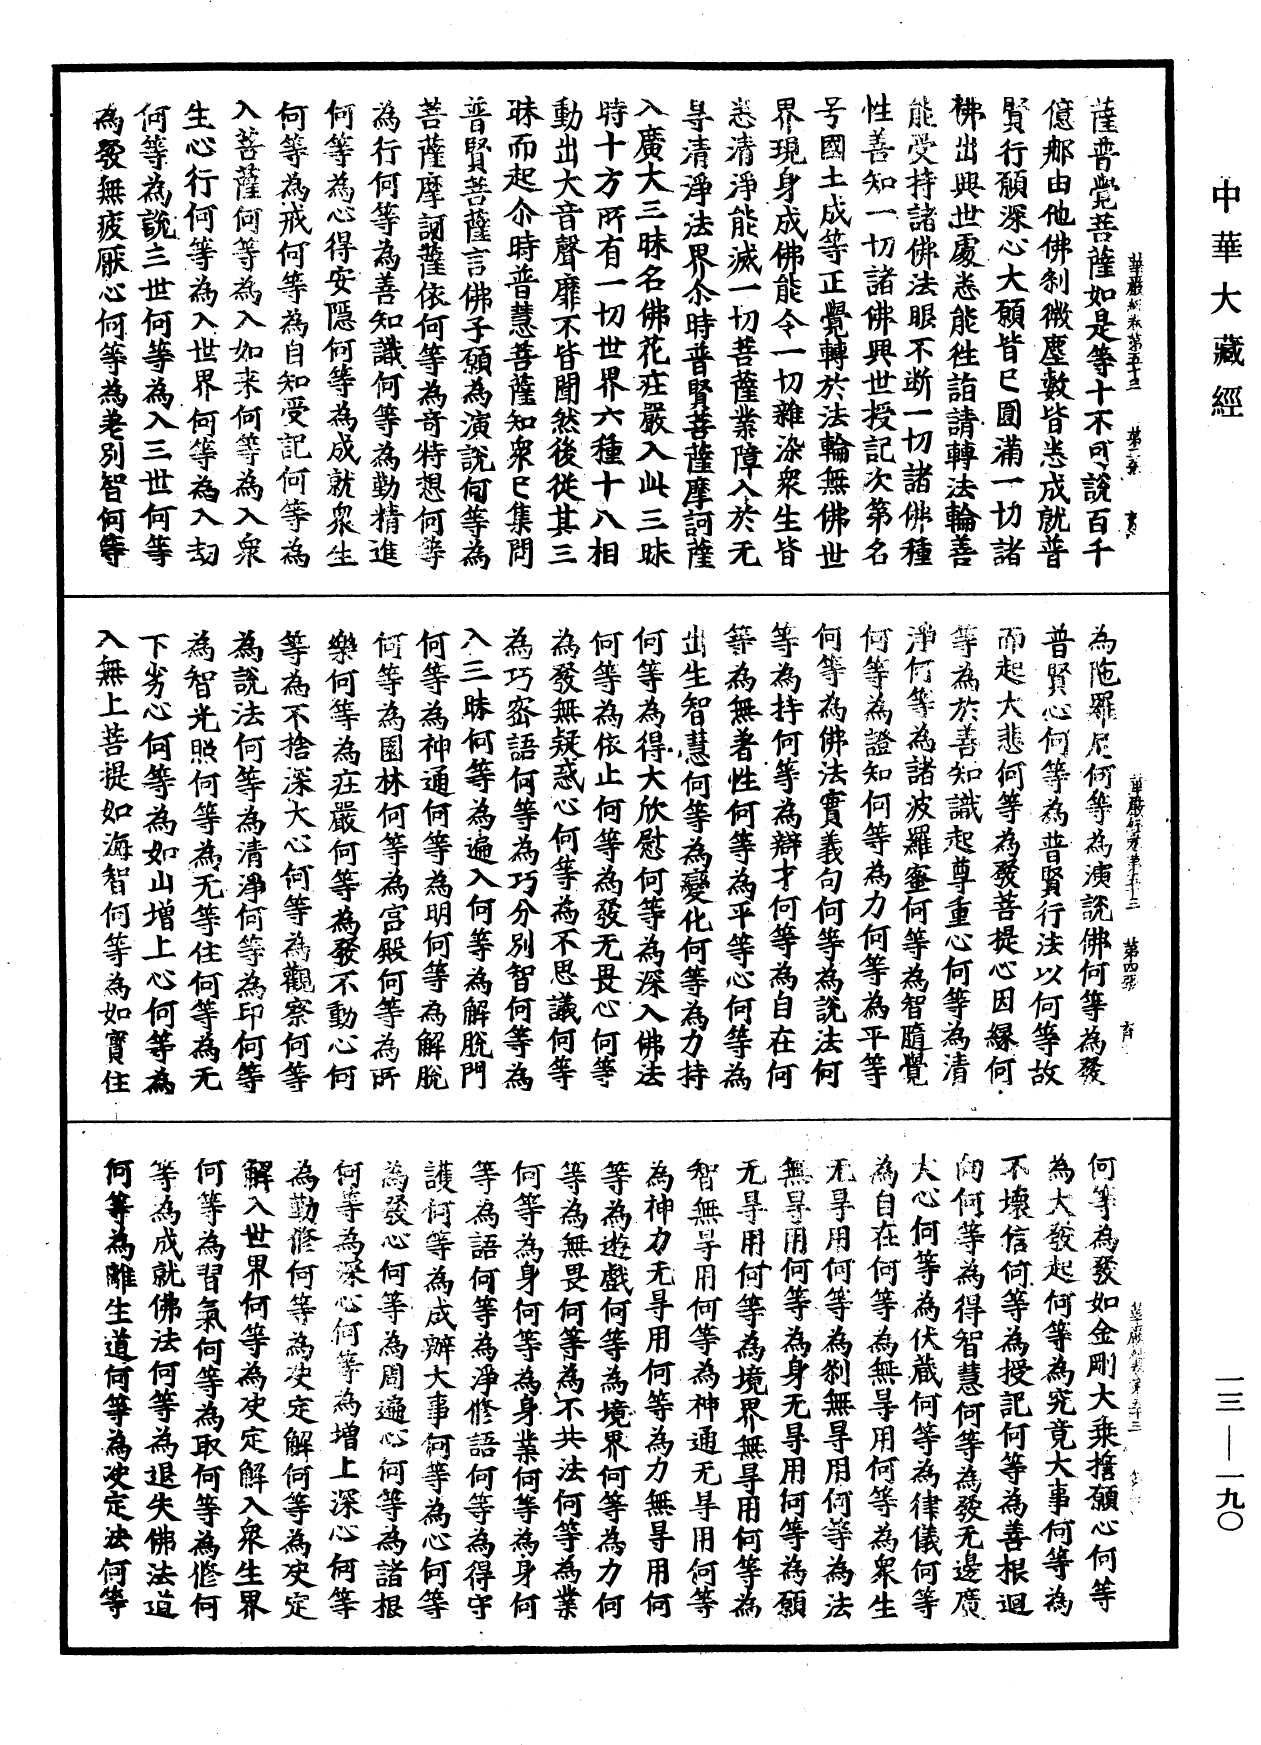 中華大藏經
薩普覺菩薩如是等十不可說百千
億那由他佛刹微塵數皆悉成就普
賢行願深心大願皆已圓滿一切諸
佛出興世處悉能往詣請轉法輪善
能受持諸佛法眼不断一切諸佛種
性善知一切諸佛興世授記次第名
号國土成等正覺轉於法輪無佛世
界現身成佛能令一切雜染衆生皆
悉清淨能滅一切菩薩業障入於无
㝵清淨法界尒時普賢菩薩摩訶薩
入廣大三昧名佛花莊嚴入此三昧
時十方所有一切世界六種十八相
動出大音聲靡不皆聞然後從其三
昧而起尒時普慧菩薩知衆已集問
普賢菩薩言佛子願為演說何等為
菩薩摩訶薩依何等為奇特想何等
為行何等為善知識何等為勤精進
何等為心得安隱何等為成就衆生
何等為戒何等為自知受記何等為
入菩薩何等為入如来何等為入衆
生心行何等為入世界何等為入劫
何等為說三世何等為入三世何等
為發無疲厭心何等為差別智何等
為陁羅尼何等為演說佛何等為發
普賢心何等為普賢行法以何等故
而起大悲何等為發菩提心因緣何
等為於善知識起尊重心何等為清
淨何等為諸波羅蜜何等為智隨覺
何等為證知何等為力何等為平等
何等為佛法實義句何等為說法何
等為持何等為辯才何等為自在何
等為無著性何等為平等心何等為
出生智慧何等為變化何等為力持
何等為得大欣慰何等為深入佛法
何等為依止何等為發无畏心何等
為發無疑惑心何等為不思議何等
為巧密語何等為巧分別智何等為
入三昧何等為遍入何等為解脫門
何等為神通何等為明何等為解脫
何等為園林何等為宮殿何等為所
樂何等為莊嚴何等為發不動心何
等為不捨深大心何等為觀察何等
為說法何等為清淨何等為印何等
為智光照何等為无等住何等為无
下劣心何等為如山增上心何等為
入無上菩提如海智何等為如實住
何等為發如金剛大乘擔願心何等
為大發起何等為究竟大事何等為
不壞信何等為授記何等為善根迴
向何等為得智慧何等為發无邊廣
大心何等為伏藏何等為律儀何等
為自在何等為無㝵用何等為衆生
无㝵用何等為刹無㝵用何等為法
無㝵用何等為身无㝵用何等為願
无㝵用何等為境界無㝵用何等為
智無㝵用何等為神通无㝵用何等
為神力无㝵用何等為力無㝵用何
等為遊戲何等為境界何等為力何
等為無畏何等為不共法何等為業
何等為身何等為身業何等為身何
等為語何等為淨修語何等為得守
護何等為成辦大事何等為心何等
為發心何等為周遍心何等為諸根
何等為深心何等為增上深心何等
為勤修何等為决定解何等為决定
解入世界何等為决定解入衆生界
何等為習氣何等為取何等為修何
等為成就佛法何等為退失佛法道
何等為離生道何等為决定法何等
一三—一九〇